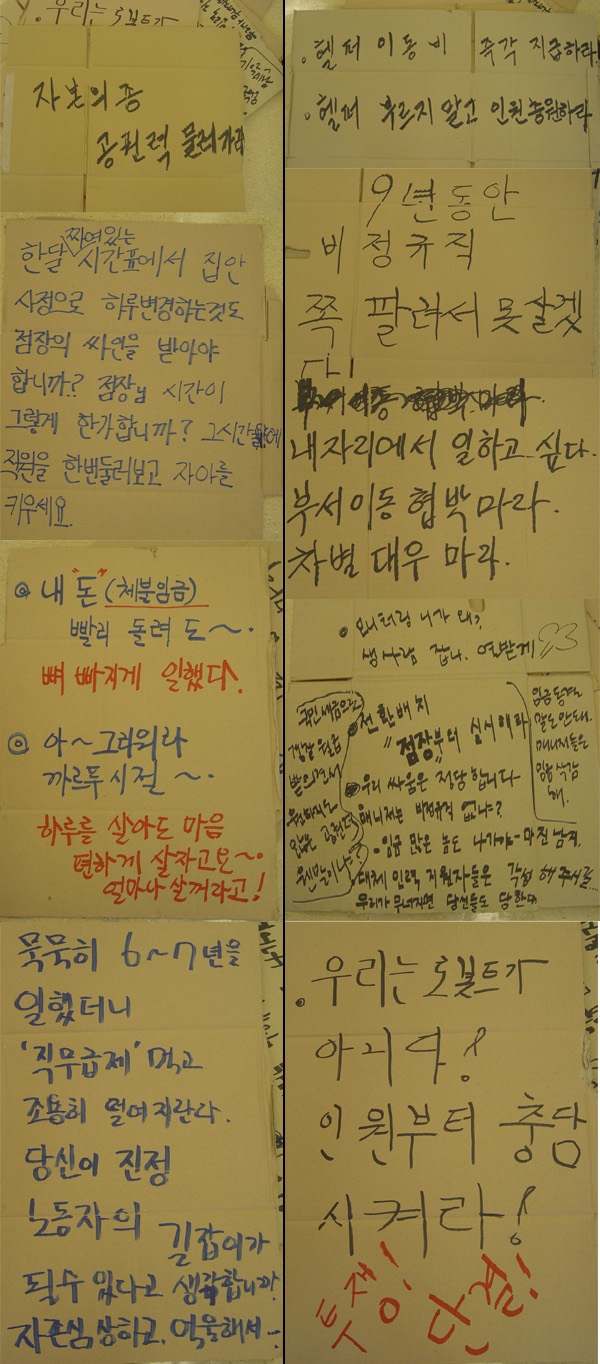 우리는 로보트가
자본의 종
공권력 물러가라
짜여있는
한달 시간표에서 집안
사정으로 하루변경하는것도
점장의 싸인을 받아야
합니까? 점장님 시간이
그렇게 한가합니까? 그시간에
직원을 한번둘러보고 자아를
키우세요.
내 "돈" (체불임금)
빨리 돌려 도~.
뼈 빠지게 일했다.
아~그리워라
까르푸시절 ~.
하루를 살아도 마음
편하게 살자고요~.
얼마나 살꺼라고!
묵묵히 6~7년을
일했더니
'직무급제' 먹고
조용히 떨어지란다.
당신이 진정
노동자의 길잡이가
될수 있다고 생각합니까
자존심상하고, 억울해서
.헬퍼 이동비 즉각 지급하라!
.헬퍼 부르지 말고 인원충원하라
9년동안
비정규직
쪽팔려서 못살겠
다!
내자리에서 일하고 싶다.
부서이동 협박마라.
차별대우 마라.
모니터링 니가 왜?
생사람 잡니. 열받게
전환배치
"점장"부터 실시해라
우리 싸움은 정당합니다
매니저는 비정규직 없냐?
임금 많은 놈도 나가야-
대체 인력 지원자들은 각성 해주서를
우리가 무너지면 당신들도 당한다
임금동결도
말도안돼.
매니저들은
임금삭감
해.
국민세금으로
월급
받으면서
.우리는 로보트가
아니다!
인원부터 충담
시켜라!
투쟁! 단결!